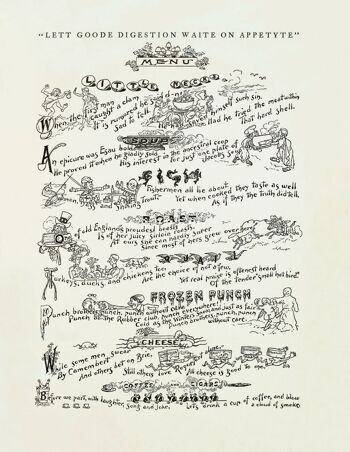 "LETT GOODE DIGESTION WAITE ON APPETYTE"
MENU
LITTLE NECKS
When the first man caught a clam
It is rumored he said d-n!
Sad to tell.
He had never himself such sin,
lad he tried the meat within
That hard shell.
SOUP
An epicure was Esau bold
He proved it when he gladly sold
His interest in the ancestral coop
for just one plate of
Jacob's soup.
FISH
Fishermen all lie about
man, and
Trout.
Yet when cooked they taste as well
As if They the Truth did tell.
ROAST
of old England's proudest beasts
Is of her juicy sirloin roasts.
At ours she can hardly sneer
Since most of hers grew over here.
Turkeys, ducks, and chickens too,
Are the choice of not a few,
Yet real praise is oftenest heard
Of the Tender "small hot bird."
FROZEN PUNCH
Punch brothers, punch, punch without care
Punch at the Rubber club, punch everywhere!
Cold as the Winter's and just as fair
Punch brothers, punch, punch
without care.
CHEESE
While some men swear
By Camembert
And others bet on Brie,
Still others love
All cheese is good to me.
COFFEE AND CIGARS
Before we part, with laughter, song and joke,
Let's drink a cup of coffee, and blow
a cloud of smoke